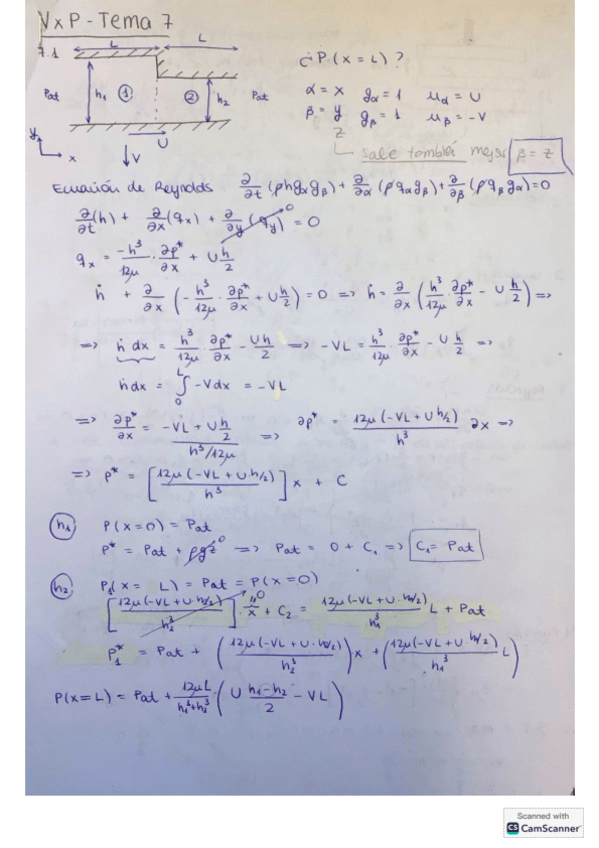 VxP - Tema 7
7.1
L
L
Pat h₁ ① ② h₂ Pat
U
V
y
x
¿P(x=L)?
α = x gα = 1 uα = U
β = y gβ = 1 uβ = -V
z
sale también mejor β = z
Ecuación de Reynolds ∂/∂t (ρh gα gβ) + ∂/∂α (ρ qα gβ) + ∂/∂β (ρ qβ gα) = 0
∂/∂t (h) + ∂/∂x (qx) + ∂/∂y (qy)⁰ = 0
qx = -h³/12μ · ∂p*/∂x + U h/2
ḣ + ∂/∂x (-h³/12μ · ∂p*/∂x + U h/2) = 0 => ḣ = ∂/∂x (h³/12μ ∂p*/∂x - U h/2) =>
=> ḣ dx = h³/12μ · ∂p*/∂x - Uh/2 => -VL = h³/12μ · ∂p*/∂x - U h/2 =>
ḣdx = ∫₀ᴸ -Vdx = -VL
=> ∂p*/∂x = (-VL + U h/2)/(h³/12μ) => ∂p* = 12μ(-VL + U h/2)/h³ ∂x =>
=> p* = [12μ(-VL + U h/2)/h³] x + C
h₁ P(x=0) = Pat
P* = Pat + ρgz⁰ => Pat = 0 + C₁ => C₁ = Pat
h₂ P₁(x = L) = Pat = P(x=0)
[12μ(-VL + U·h₂/2)/h₂³] · x⁰ + C₂ = 12μ(-VL + U·h₁/2)/h₁³ L + Pat
P₁* = Pat + (12μ(-VL + U·h₂/2)/h₂³) x + (12μ(-VL + U·h₁/2)/h₁³ L)
P(x=L) = Pat + 12μL/(h₁³+h₂³) · (U (h₁-h₂)/2 - VL)
Scanned with
CS CamScanner